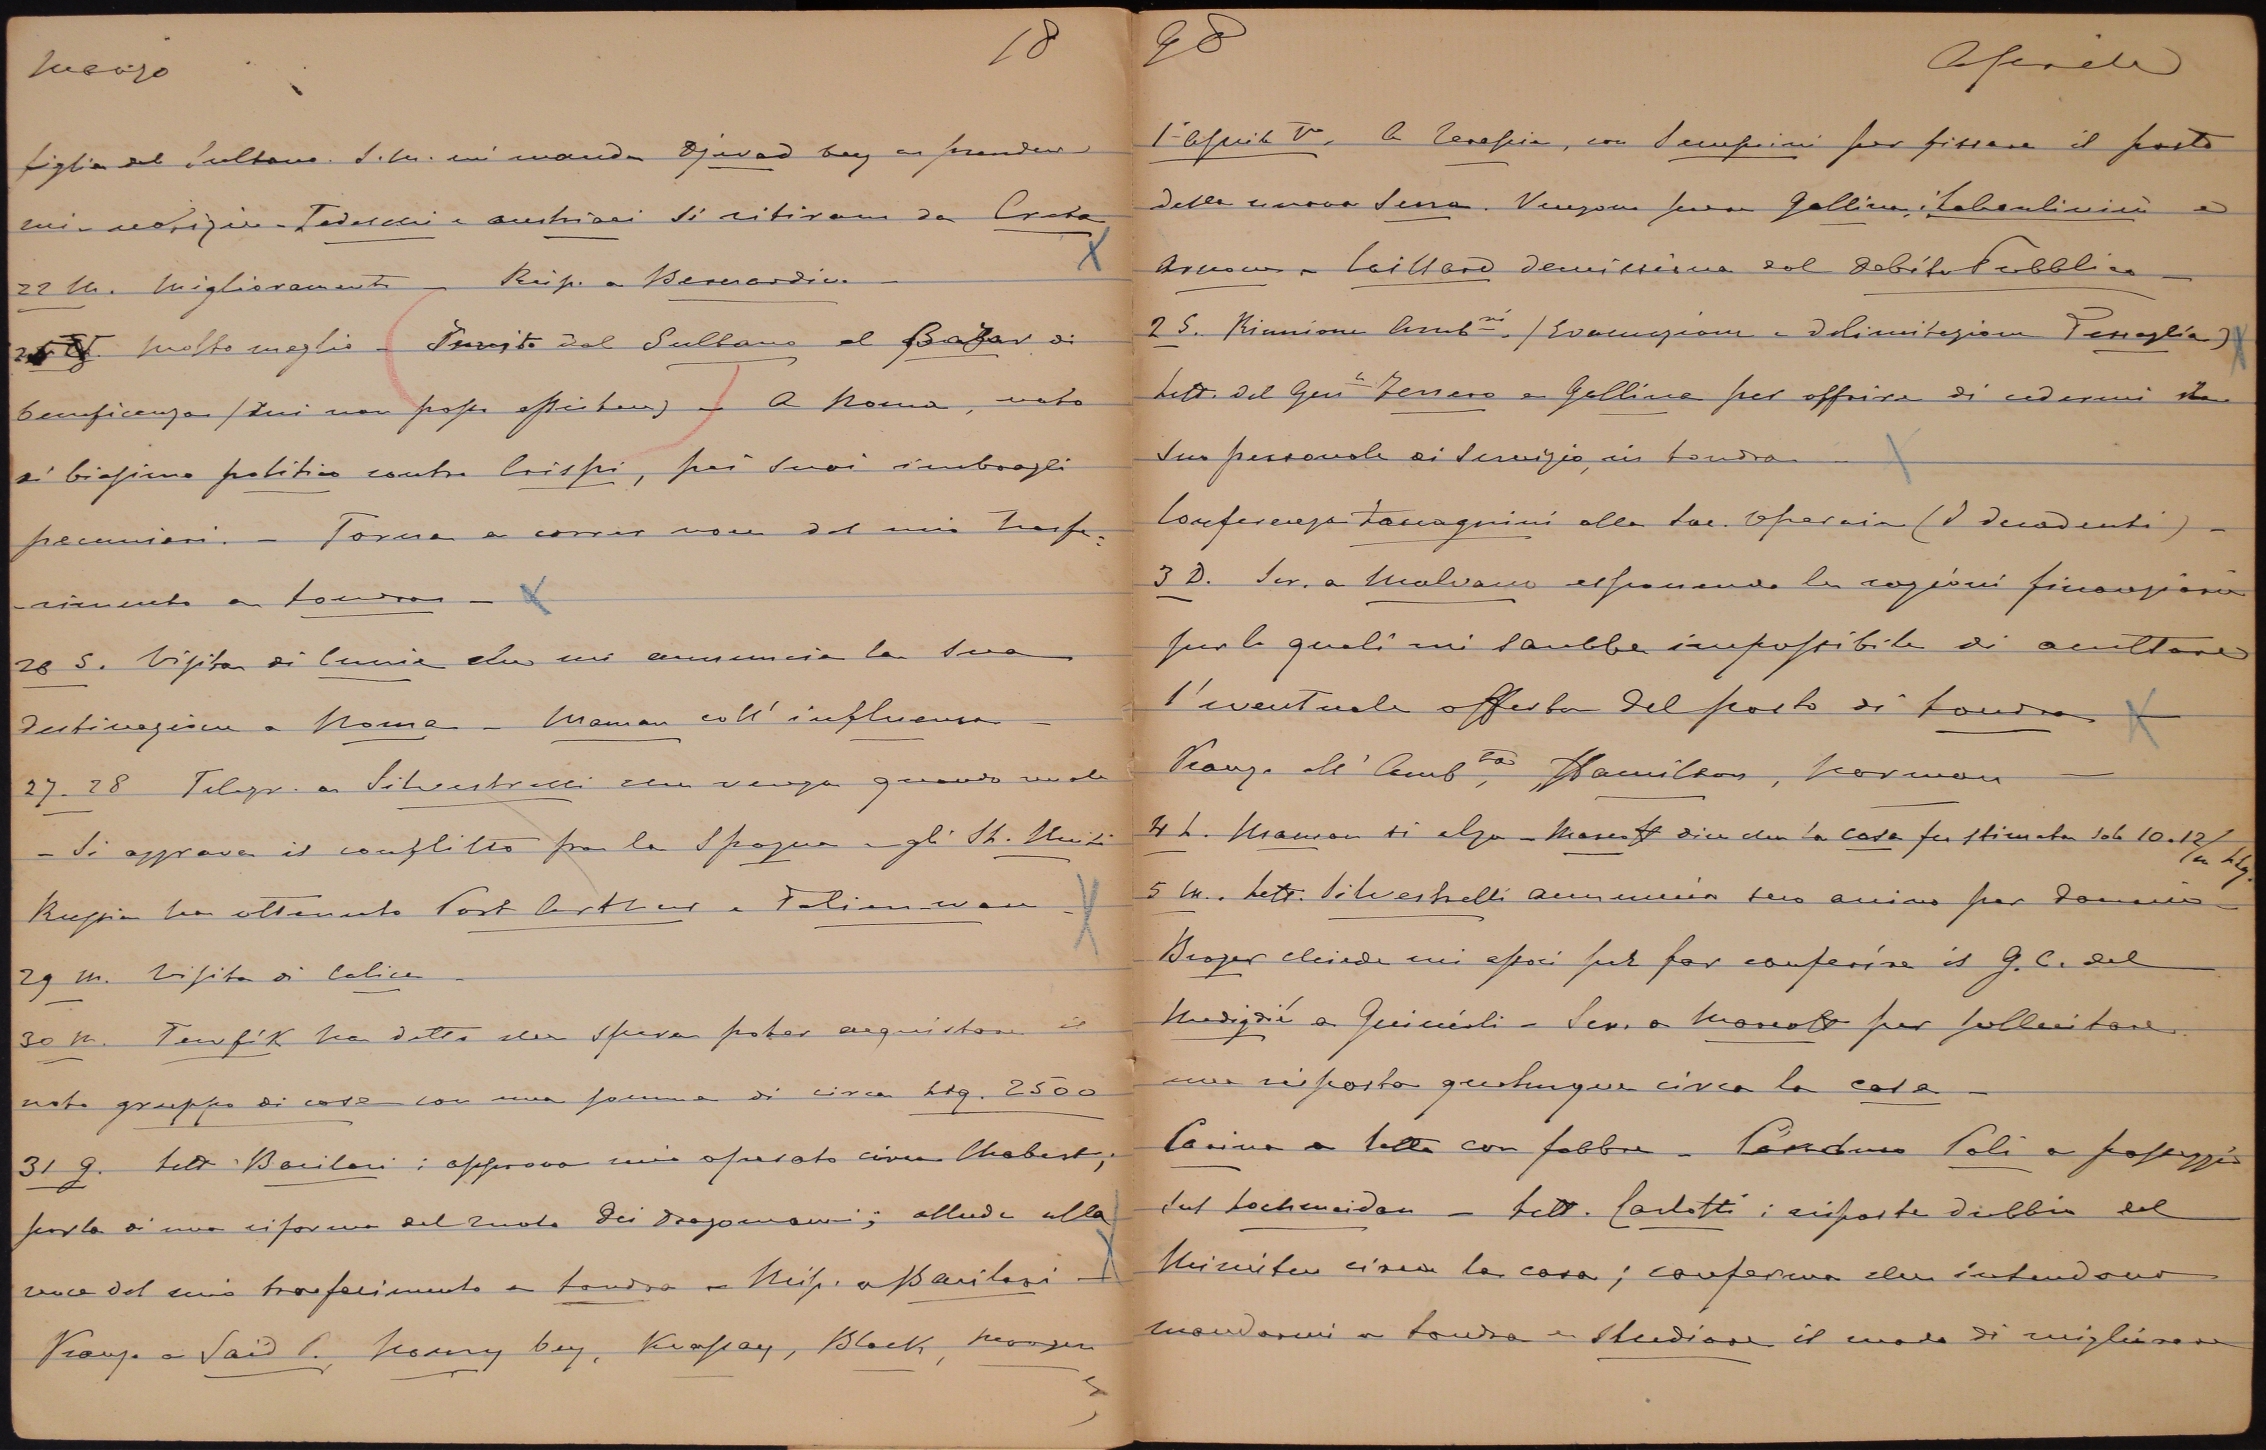 Marzo 18
figlia del Sultano. S. M. mi manda Djevad bey a prendere
mie notizie - Tedeschi e austriaci si ritirano da Creta
22 M. Miglioramento - Risp. a Bernardin -
Molto meglio - Invito dal Sultano al Bazar di
beneficenza (cui non posso assistere) - A Roma, voto
di biasimo politico contro Crispi, pei suoi imbrogli
pecuniari. - Torna a correr voce del mio trasfe-
-rimento a Londra -
26 S. Visita di che mi annuncia la sua
destinazione a Roma - Maman coll' influenza -
27. 28 Telegr. a Silvestrelli che venga quando vuole
- Si aggrava il conflitto fra la Spagna e gli St. Uniti
Russia ha ottenuto Port Arthur e Talien-wan -
29 M. Visita di Calice -
30 M. Tewfik ha detto che spera poter acquistare il
noto gruppo di case con una somma di circa Ltq. 2500
31 G. Lett. Bacilari : approva mio operato circa Chabert;
parla di una riforma del ruolo dei dragomanni; allude alla
voce del mio trasferimento a Londra - Risp. a Bacilari -
Pranzo a Said P., Noury bey, Block,
98 Aprile
1° Aprile Vn. A Terapia, con Semprini per fissare il posto
della nuova Serra. Vengono pure Gallina, e
- Caillard demissiona dal debito Pubblico -
2 S. Riunione Ambri. (Evacuazione e delimitazione Tessaglia)
Lett. del Genle Ferrero a Gallina per offrire di cedermi
suo personale di servizio, in Londra -
Conferenza alla Soc. Operaia (I decadenti) -
3 D. Scr. a Malvano esponendo le ragioni finanziarie
per le quali mi sarebbe impossibile di accettare
l'eventuale offerta del posto di Londra -
Pranzo all' Ambta, Hamilton, Norman -
4 L. Maman si alza - dice che la casa fu stimata Ltq. 10 a 12/m
5 M. Lett. Silvestrelli annuncia suo arrivo per domani -
chiede mi per far conferire il G. C. del
Medjidié a - Scr. a per sollecitare
una risposta qualunque circa la casa -
Carina a letto con febbre - Poli a passeggio
sul - Lett. Carlotti : risposte dubbie del
Ministero circa la casa ; conferma che intendono
mandarmi a Londra e studiare il modo di migliorare